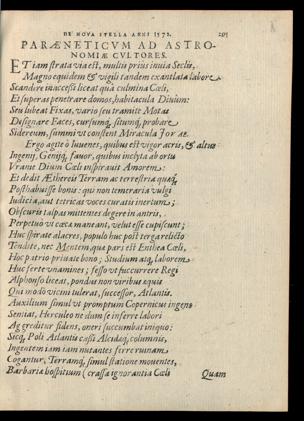 DE NOVA STELLA ANNI 1572.
PARÆNETICUM AD ASTRO-
NOMIÆ CVLTORES.
ET iam strata via est, multis prius invia Seclis,
Magno equidem & vigili tandem exantlata labore
Scandere inaccessi liceat quâ culmina Cœli,
Et superas penetrare domos, habitacula Divûm:
Seu lubeat Fixas, vario seu tramite Motas
Designare Faces, cursumq́, sitúmq, probare
Sidereum, summi vt constent Miracula
Ergo agite ô Iuuenes, quibus est vigor acris, & altus
Ingenij, Genijq́, fauor, quibus inclyta ab ortu
Vranie Divûm Cœli inspirauit Amorem:
Et dedit Æthereis Terram ac terrestria quæq́,
Posthabuisse bonis: qui non temeraria vulgi
Iudicia, aut tetricas voces curatis inertum;
Obscuris talpas mittentes degere in antris,
Perpetuò vt cæca maneant, velut esse cupiscunt;
Huc sperate alacres, populo huc post terga relicto
Tendite, nec Mentem, quæ pars est Enthea Cœli,
Hoc patrio priuate bono; Studium atq, laborem
Huc ferte vnanimes; fesso vt succurrere Regi
Alphonso liceat, pondus non viribus equis
Qui modò vicinu tulerat, successor, Atlantis.
Auxilium simul vt promptum Copernicus ingens
Sentiat, Herculeo ne dum se inferre labori
Aggreditur sidens, oneri succumbat iniquo:
Sicq́, Poli Atlantis cassi Alcidaq́, columnis,
Ingentem iam iam nutantes ferre ruinam
Cogantur, Terramq́, simul statione mouentes,
Barbaria hospitium (crassa ignorantia Cœli
Quam